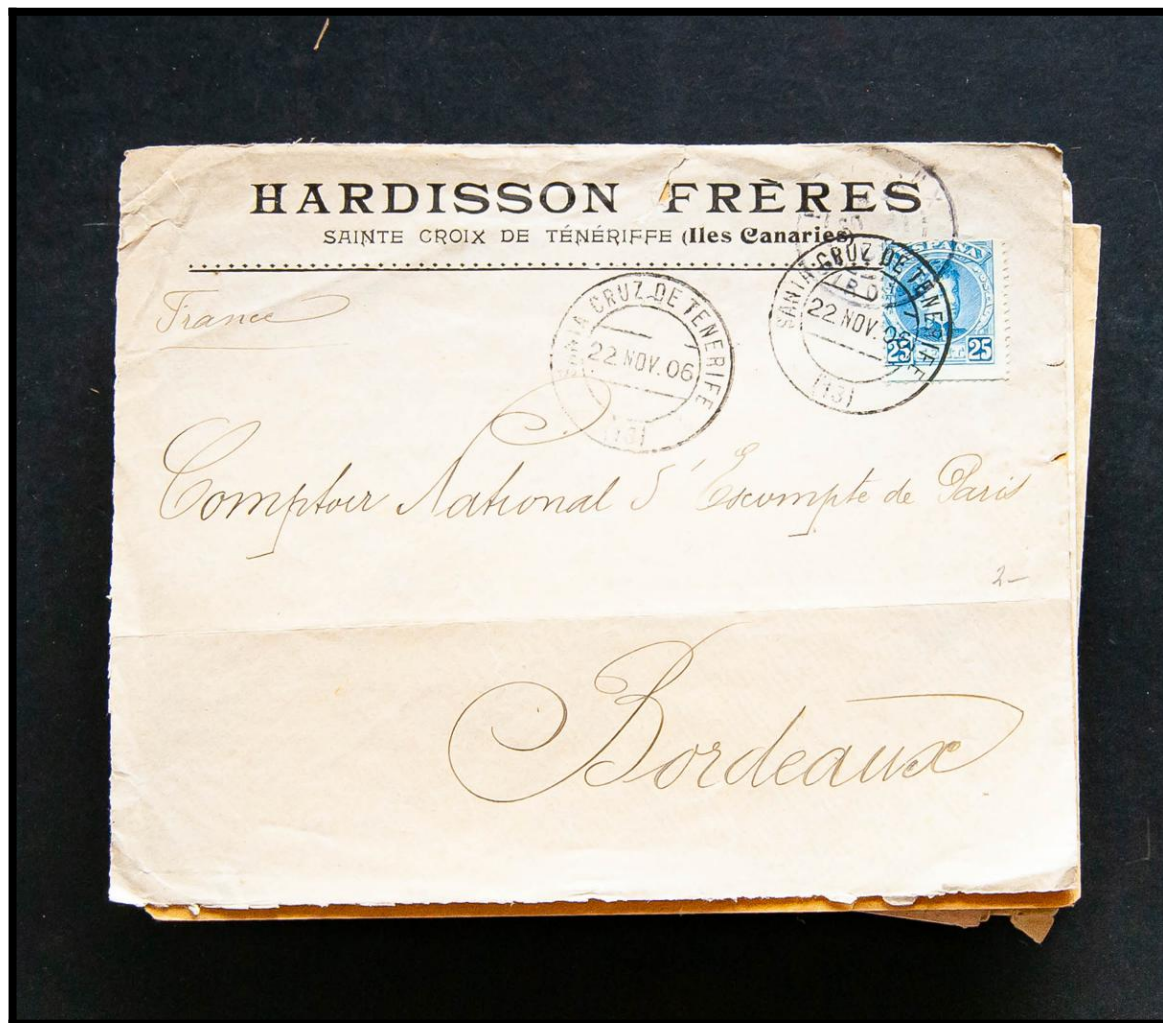 HARDISSON FRÈRES
SAINTE CROIX DE TÉNÉRIFFE (Iles Canaries)
France
SANTA CRUZ DE TENERIFE
22 NOV. 06
(13)
SANTA CRUZ DE TENERIFE
22 NOV. 06
(13)
ESPAÑA
25 25
Comptoir National d'Escompte de Paris
2-
Bordeaux